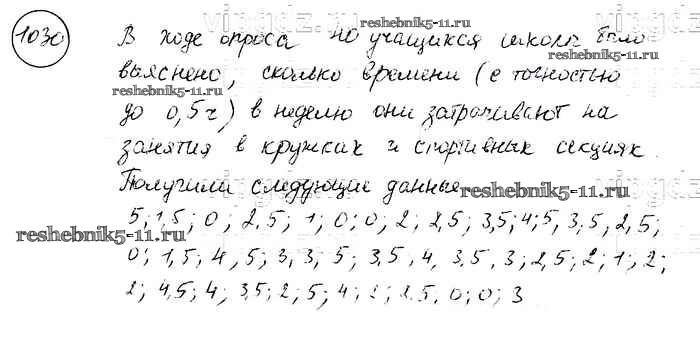 1030
В ходе опроса 40 учащихся школы было
reshebnik5-11.ru
выяснено, сколько времени (с точностью
reshebnik5-11.ru
до 0,5 ч) в неделю они затрачивают на
занятия в кружках и спортивных секциях.
Получили следующие данные
reshebnik5-11.ru
5; 1,5; 0; 2,5; 1; 0; 0; 2; 2,5; 3,5; 4; 5; 3,5; 2,5;
reshebnik5-11.ru
0; 1,5; 4,5; 3; 3; 5; 3,5; 4; 3,5; 3; 2,5; 2; 1; 2;
2; 4,5; 4; 3,5; 2; 5; 4; 2,5; 0; 0; 3